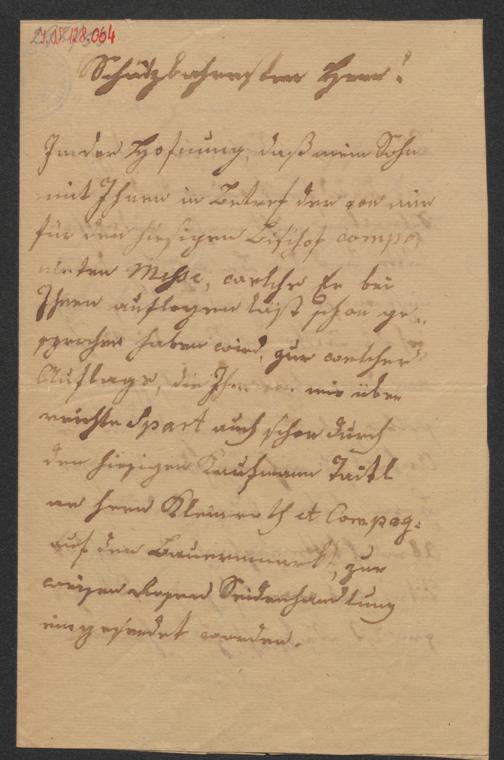 Schätzbahrester Herr!
In der Hofnung, daß mein Sohn
mit Ihnen in Betref der von mir
für den hiesigen Bischof compo
nirten Messe, welche Er bei
Ihnen auflegen läßt schon ge„
sprochen haben wird, zur welcher
Auflage, die Ihnen von mir über
reichte Spart auch schon durch
den hiesigen Kaufmann Taitl
an Herrn Kleinroth et Compag:
auf den Bauernmarkt, zur
weisen Rosen Seidenhandlung
eingesendet worden.